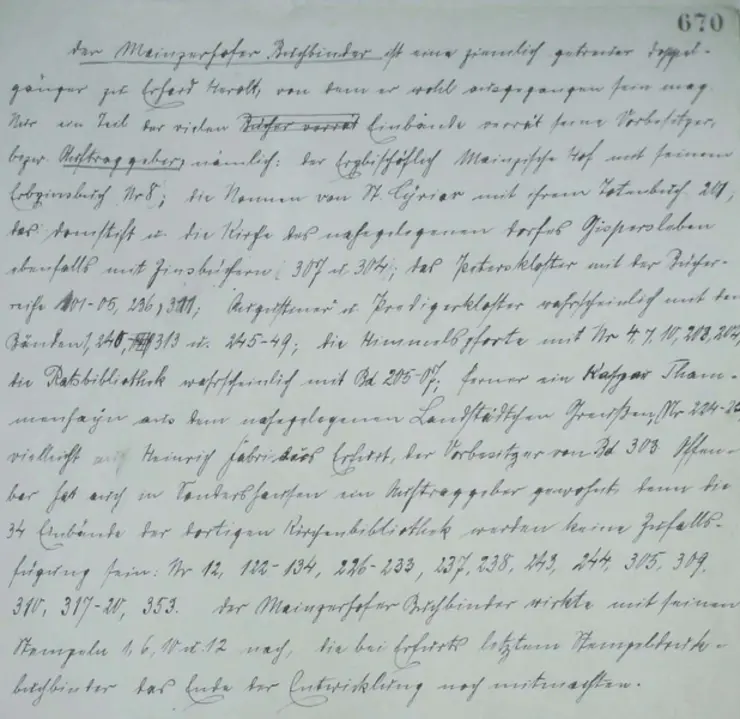 670
Der Mainzerhofer Buchbinder ist eine ziemlich getreuer Doppel-
gänger zu Erhard Herolt, von dem er wohl ausgegangen sein mag.
Nur ein Teil der vielen Bücher verrät Einbände verrät seine Vorbesitzer,
bezw. Auftraggeber, nämlich: der Erzbischöflich Mainzische Hof mit seinem
Erbzinsbuch Nr 8; die Nonnen von St. Cyriax mit ihrem Totenbuch 201;
das Domstift u. die Kirche des nahegelegenen Dorfes Gispersleben
ebenfalls mit Zinsbüchern (307 u 304); das Peterskloster mit der Bücher-
reihe 101-05, 236, 311; Augustiner u Predigerkloster wahrscheinlich mit den
Bänden 1, 240, 313 u. 245-49; die Himmelspforte mit Nr 4, 7, 10, 203, 204,
die Ratsbibliothek wahrscheinlich mit Bd 205-07; ferner ein Kaspar Tham-
menhayn aus dem nahegelegenen Landstädtchen Greußen, (Nr 224-
vielleicht auch Heinrich Fabri aus Erfurt, der Vorbesitzer von Bd 303. Offen-
bar hat auch in Sondershausen ein Auftraggeber gewohnt, denn die
34 Einbände der dortigen Kirchenbibliothek werden keine Zufalls-
fügung sein: Nr 12, 122-134, 226-233, 237, 238, 243, 244, 305, 309,
310, 317-20, 353. Der Mainzerhofer Buchbinder wirkte mit seinen
Stempeln 1, 6, 10 u. 12 nach, die bei Erfurts letztem Stempeldruck-
buchbinder das Ende der Entwicklung noch mitmachten.